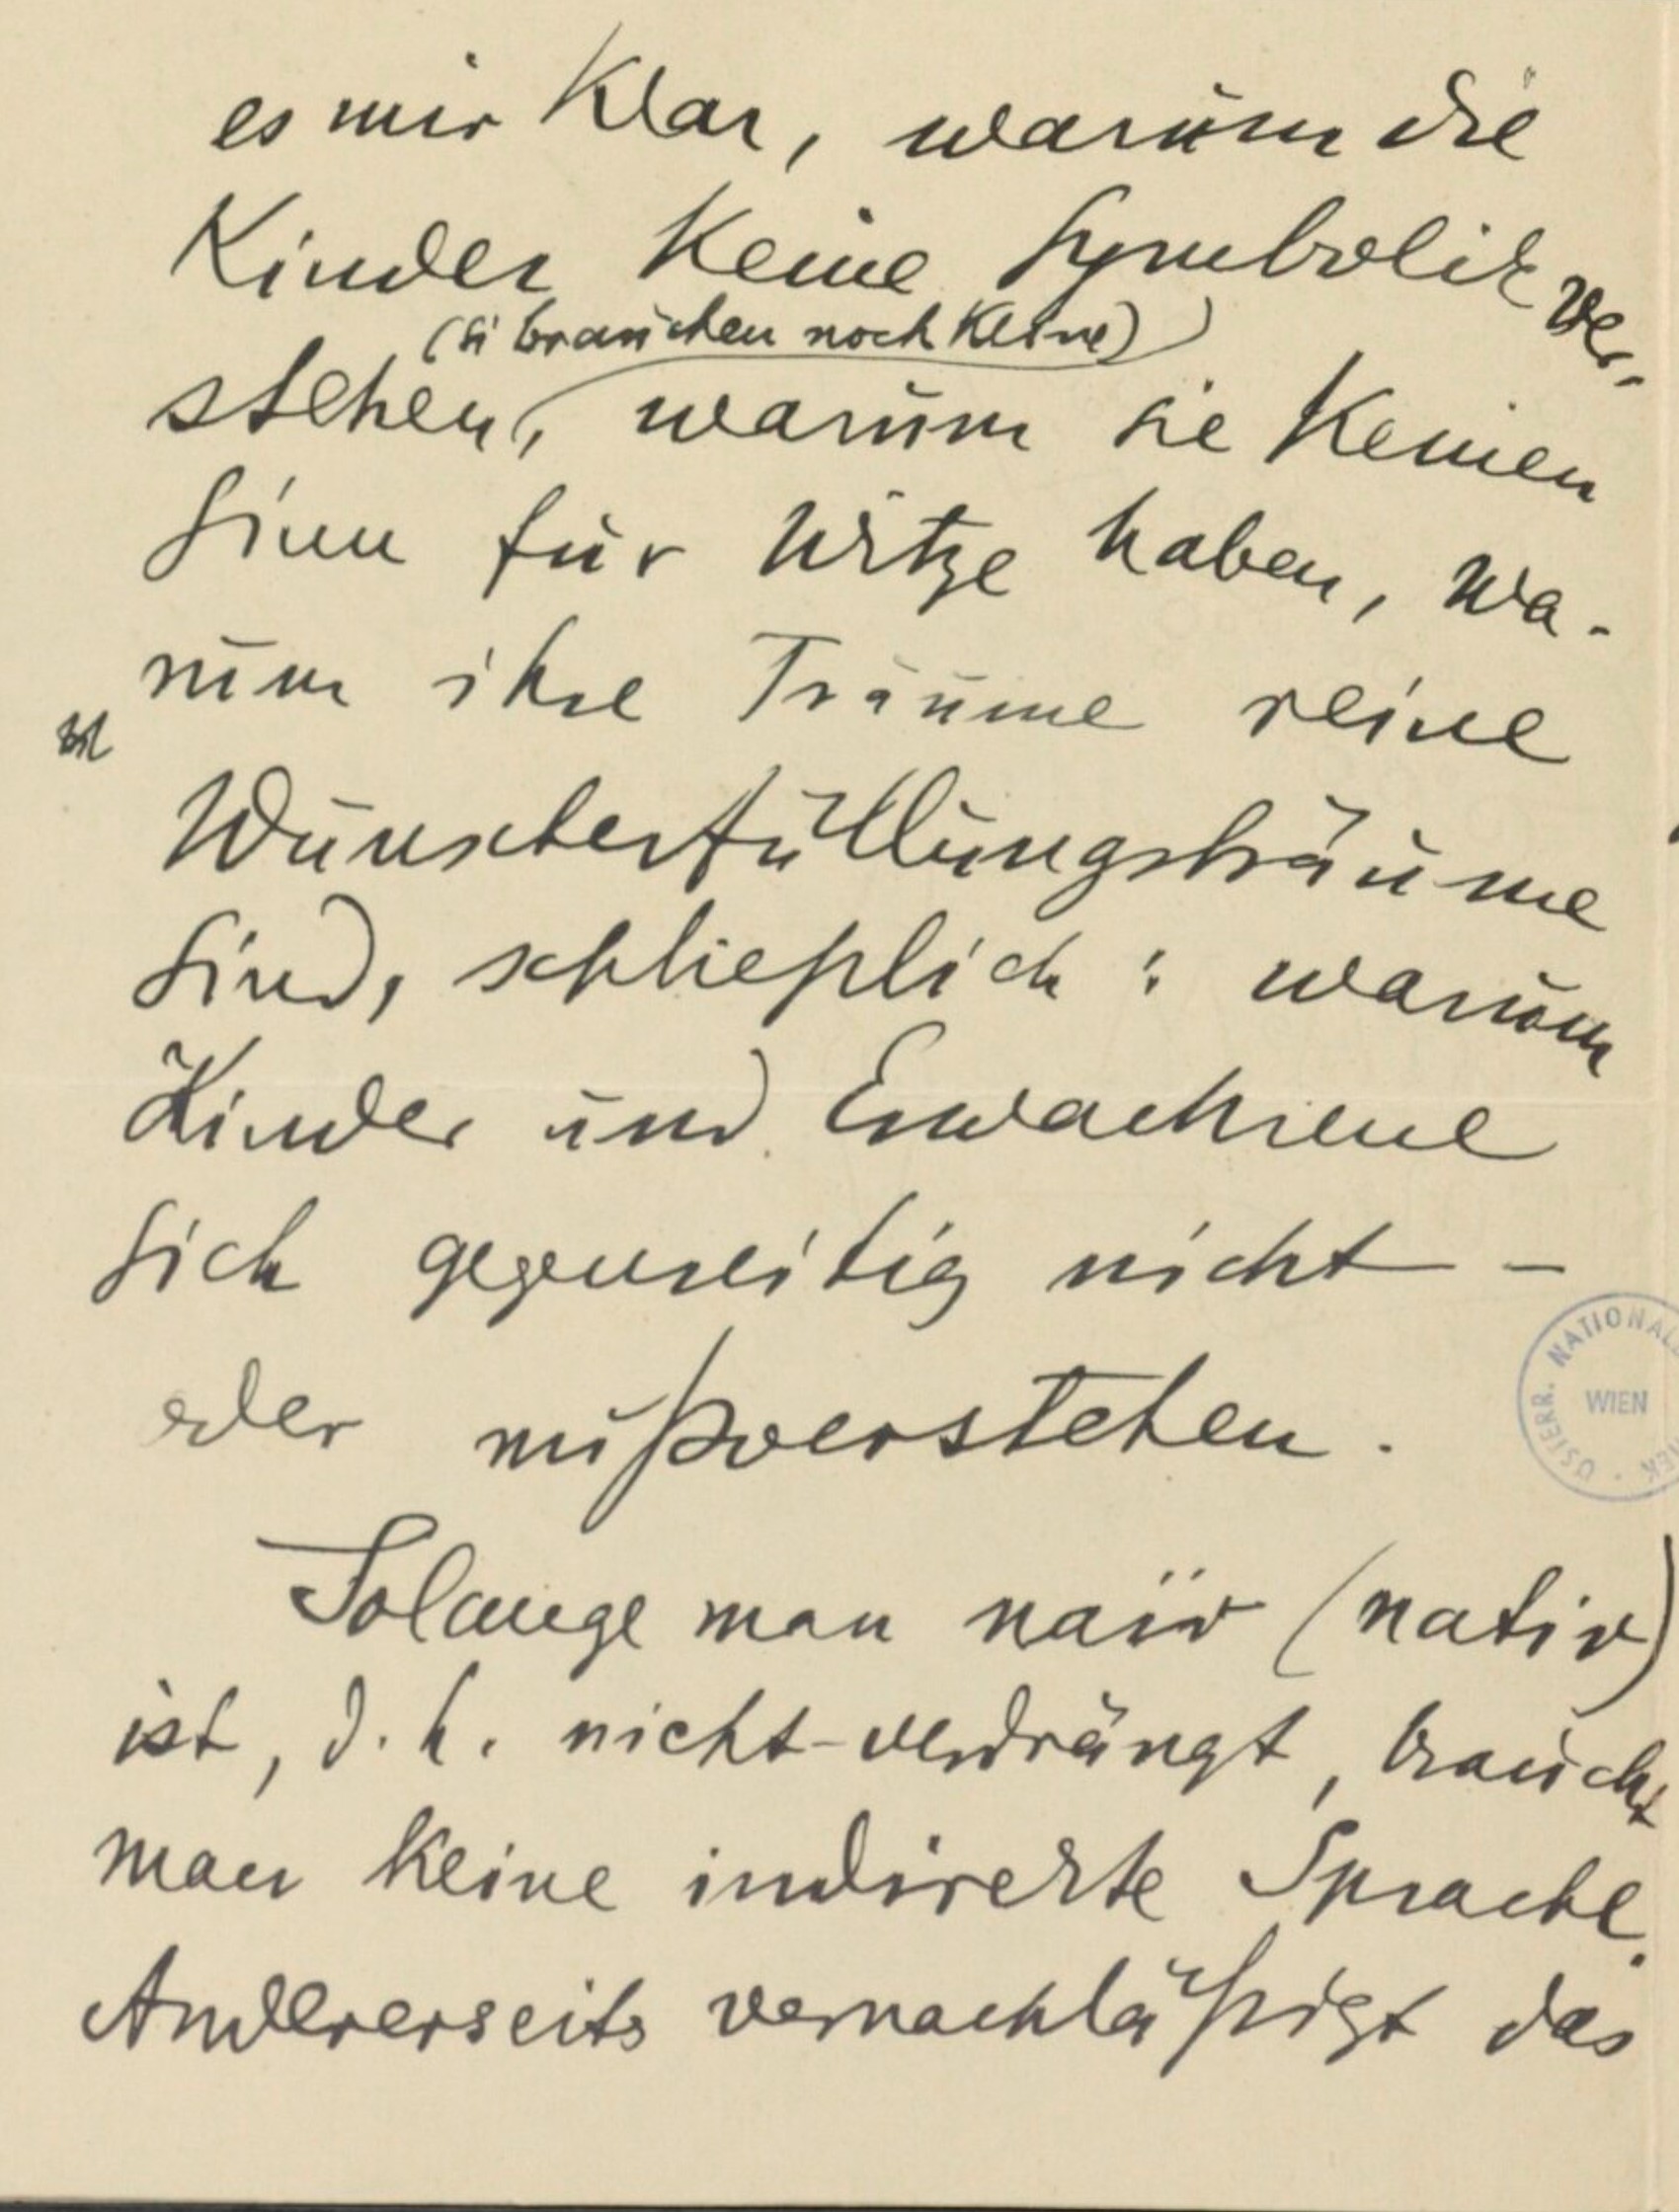 es mir klar, warum die
Kinder keine Symbolik ver-
(si brauchen noch keine)
stehen, warum sie keinen
Sinn für Witze haben, wa-
rum ihre Träume reine
Wunscherfüllungsträume
sind, schließlich: warum
Kinder und Erwachsene
sich gegenseitig nicht –
oder mißverstehen.
Solange man naïv (nativ)
ist, d. h. nicht-verdrängt, braucht
man keine indirekte Sprache.
Andererseits vernachläßigt das
ÖSTERR. NATIONAL
WIEN